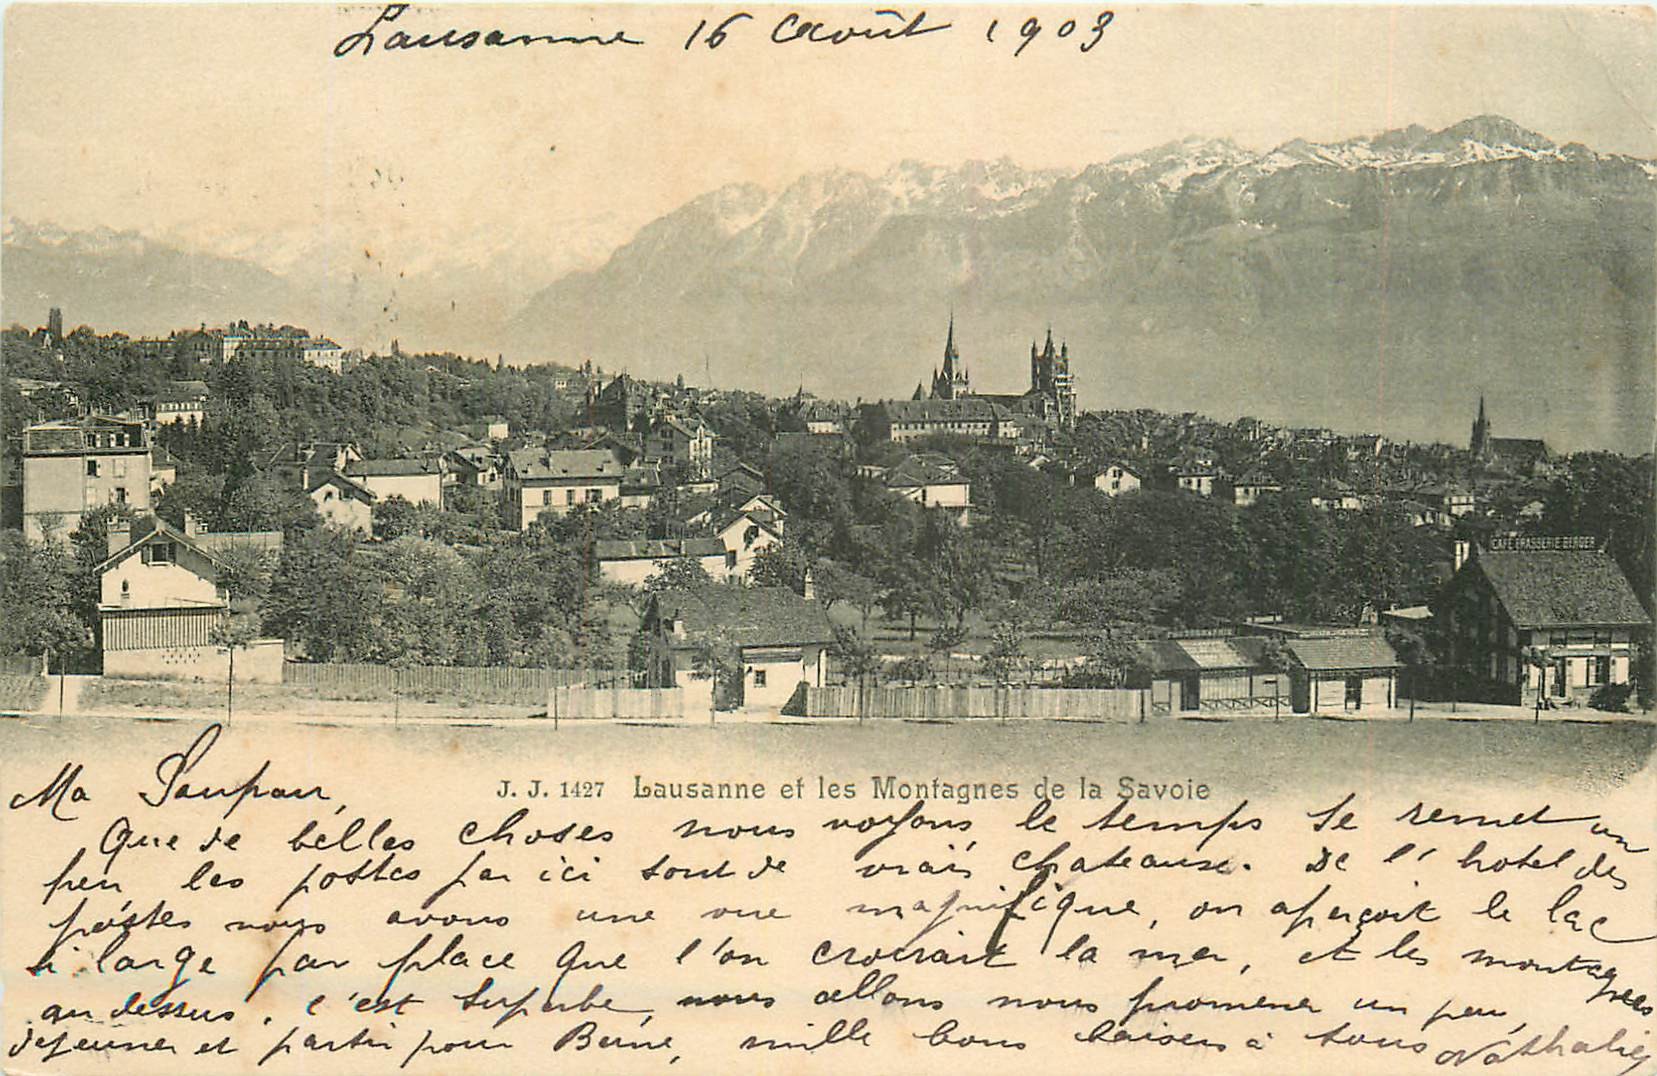 Lausanne 16 Août 1903
CAFÉ BRASSERIE BERGER
J. J. 1427 Lausanne et les Montagnes de la Savoie
Ma
Que de belles choses nous voyons le temps se remet un
peu les postes par ici sont de vrais chateaux. De l'hotel des
postes nous avons une vue magnifique, on aperçoit le lac
si large par place que l'on croirait la mer, et les montagnes
au dessus, c'est superbe, nous allons nous promener un peu,
dejeuner et partir pour Berne, mille bons baisers à tous Nathalie